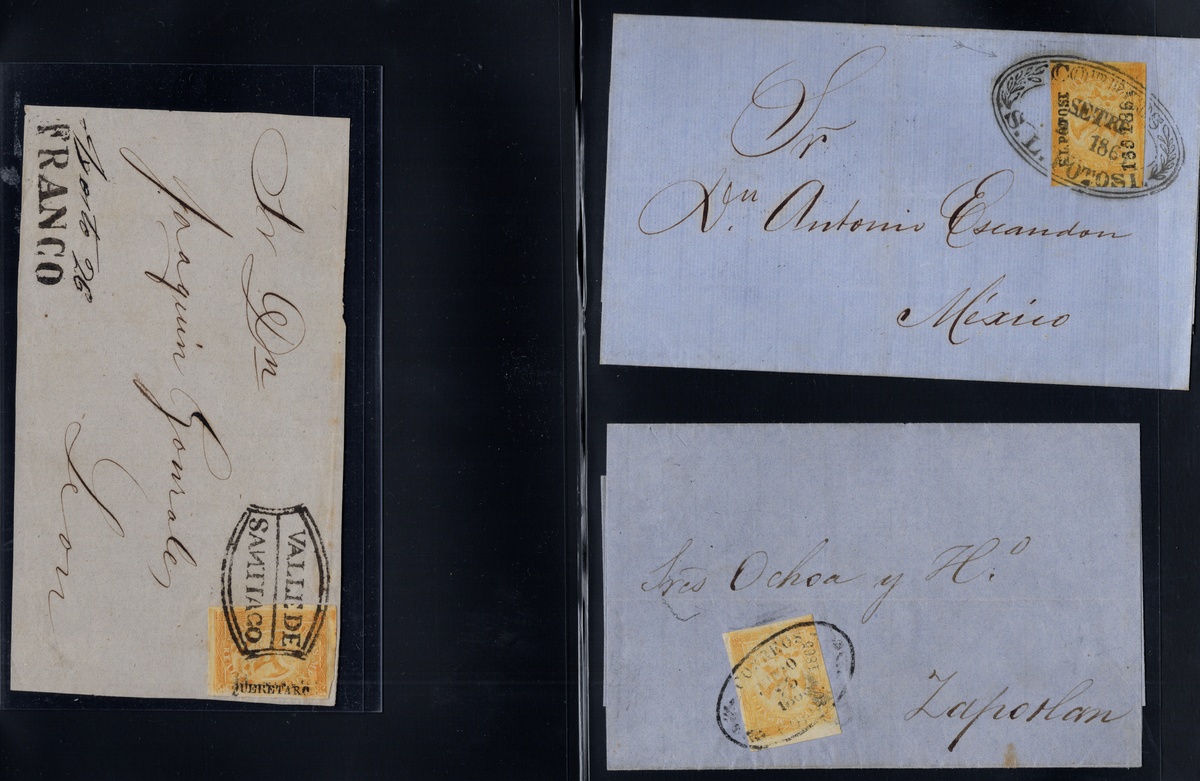 FRANCO
Agosto 26
Sr Dn
Joaquin Gonzales
Leon
VALLE DE
SANTIAGO
QUERETARO
CORREOS
SETRE
186
S. L. POTOSI.
S L POTOSI
Sr.
Dn. Antonio Escandon
México
Sres Ochoa y Hº.
CORREOS
Zapotlan